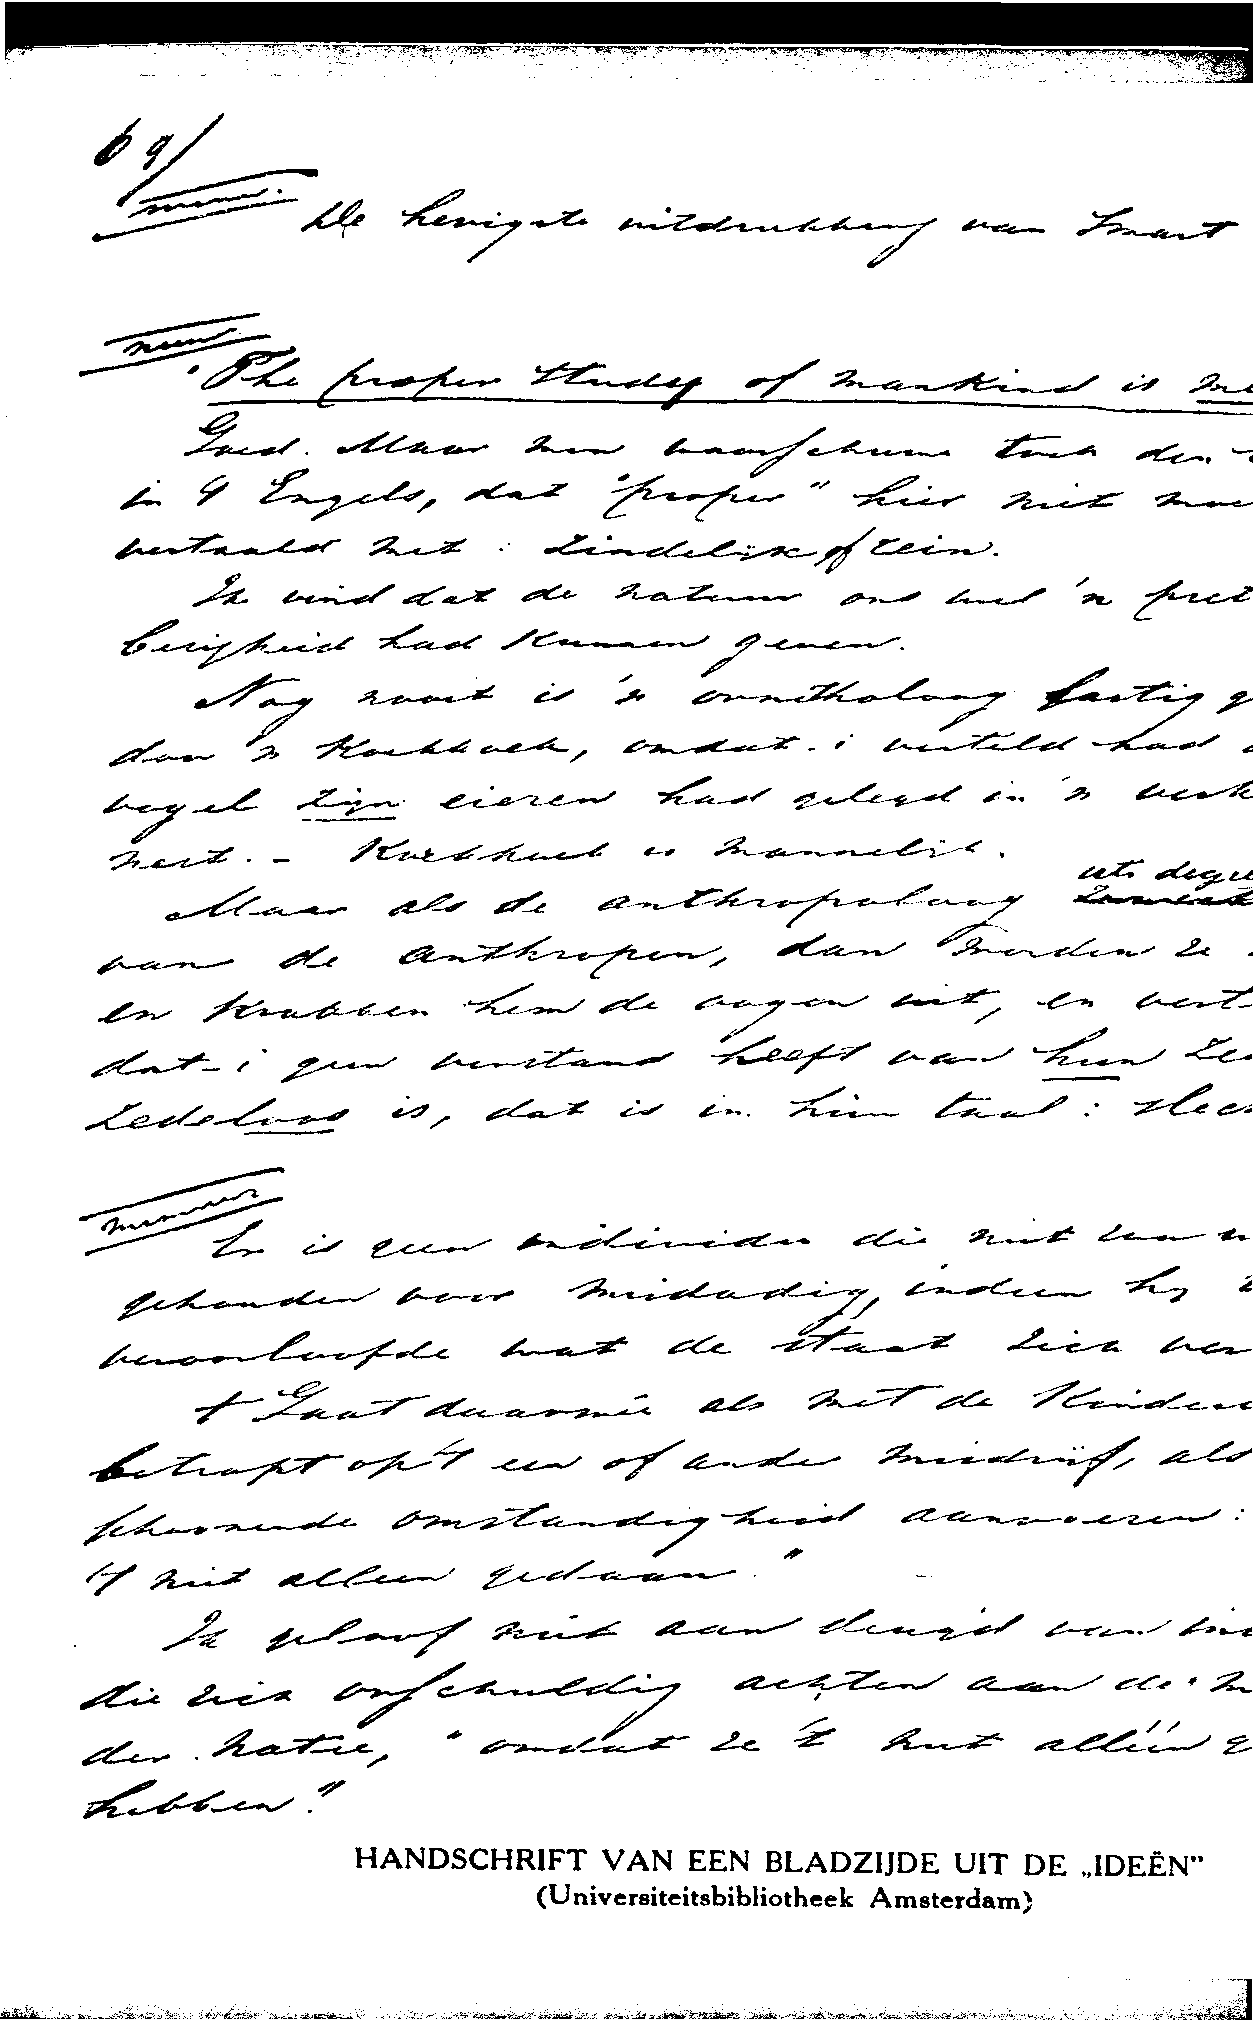 69/
nummer.
De hevigste uitdrukking van Smart
nummer
"The proper study of mankind is
Goed. Maar men waarschuwe toch den
in 't Engels, dat "proper" hier niet
vertaald met: zindelijk of rein.
Ik vind dat de natuur ons wel 'n
berigheid had kunnen geven.
Nog nooit is 'n ornitholoog lastig
door 'n Koekkoek, omdat-i verteld had
vogel zijn eieren had gelegd in 'n
nest. - Koekkoek is mannelijk.
Maar als de anthropoloog iets
van de anthropen, dan worden ze
en krabben hem de oogen uit, en
dat-i geen verstand heeft van hun
zedeloos is, dat is in hun taal:
nummer
Er is geen individu die niet zou
gehouden voor misdadig, indien hy
veroorloofde wat de staat zich
't Gaat daarmeê als met de
betrapt op 't een of ander misdrijf, als
schoonende omstandigheid aanvoeren:
't niet alleen gedaan."
Ik geloof niet aan deugd van
die zich onschuldig achten aan de
der natie, "omdat ze 't niet alléén
hebben."
HANDSCHRIFT VAN EEN BLADZIJDE UIT DE „IDEËN"
(Universiteitsbibliotheek Amsterdam)